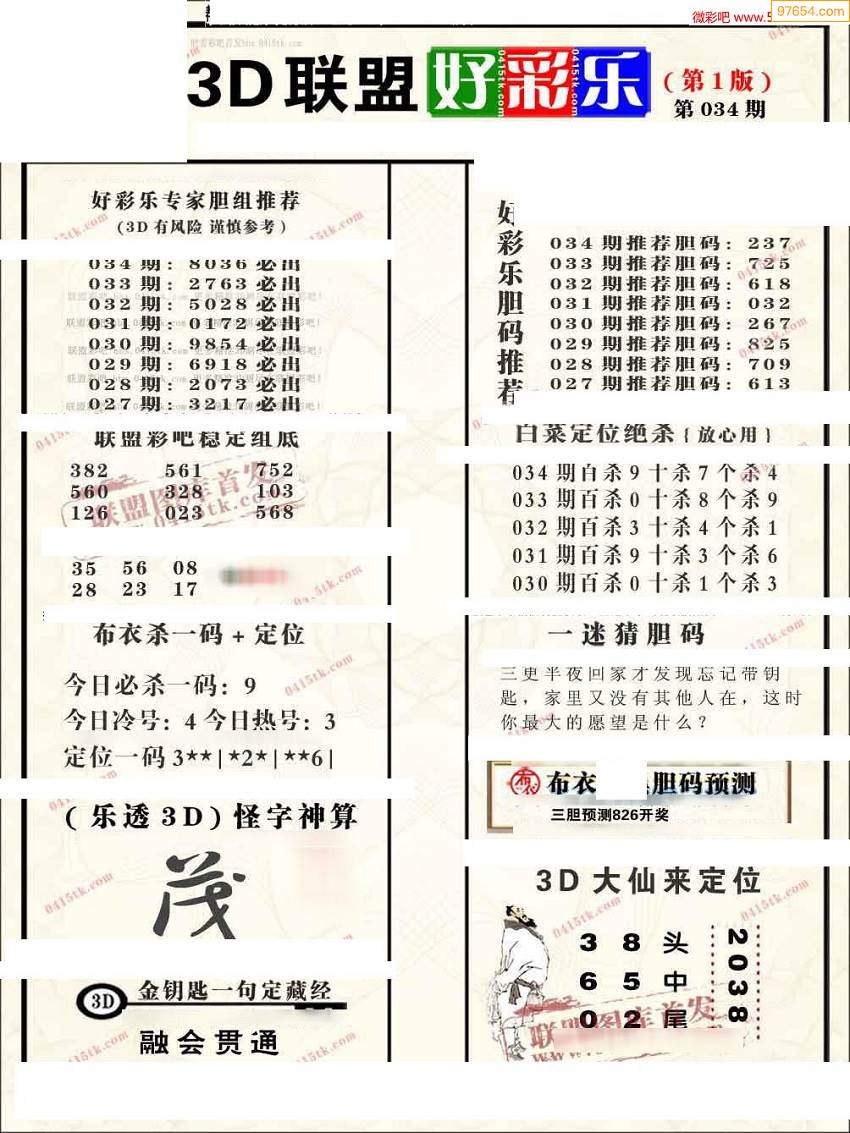 微彩吧 www.5
97654.com
3D联盟 好彩乐
(第1版)
第 034 期
好彩乐专家胆组推荐
(3D有风险 谨慎参考)
034期: 8036必出
033期: 2763必出
032期: 5028必出
031期: 0172必出
030期: 9854必出
029期: 6918必出
028期: 2073必出
027期: 3217必出
联盟彩吧稳定组底
382 561 752
560 328 103
126 023 568
35 56 08
28 23 17
布衣杀一码+定位
今日必杀一码: 9
今日冷号: 4 今日热号: 3
定位一码 3**|*2*|**6|
(乐透3D) 怪字神算
茂
3D 金钥匙一句定藏经
融会贯通
好彩乐胆码推荐
034期推荐胆码: 237
033期推荐胆码: 725
032期推荐胆码: 618
031期推荐胆码: 032
030期推荐胆码: 267
029期推荐胆码: 825
028期推荐胆码: 709
027期推荐胆码: 613
白菜定位绝杀{放心用}
034期百杀9十杀7个杀4
033期百杀0十杀8个杀9
032期百杀3十杀4个杀1
031期百杀9十杀3个杀6
030期百杀0十杀1个杀3
一迷猜胆码
三更半夜回家才发现忘记带钥
匙，家里又没有其他人在，这时
你最大的愿望是什么?
布衣 胆码预测
三胆预测826开奖
3D大仙来定位
3 8 头
6 5 中
0 2 尾
2038
联盟图库首发
0415tk.com